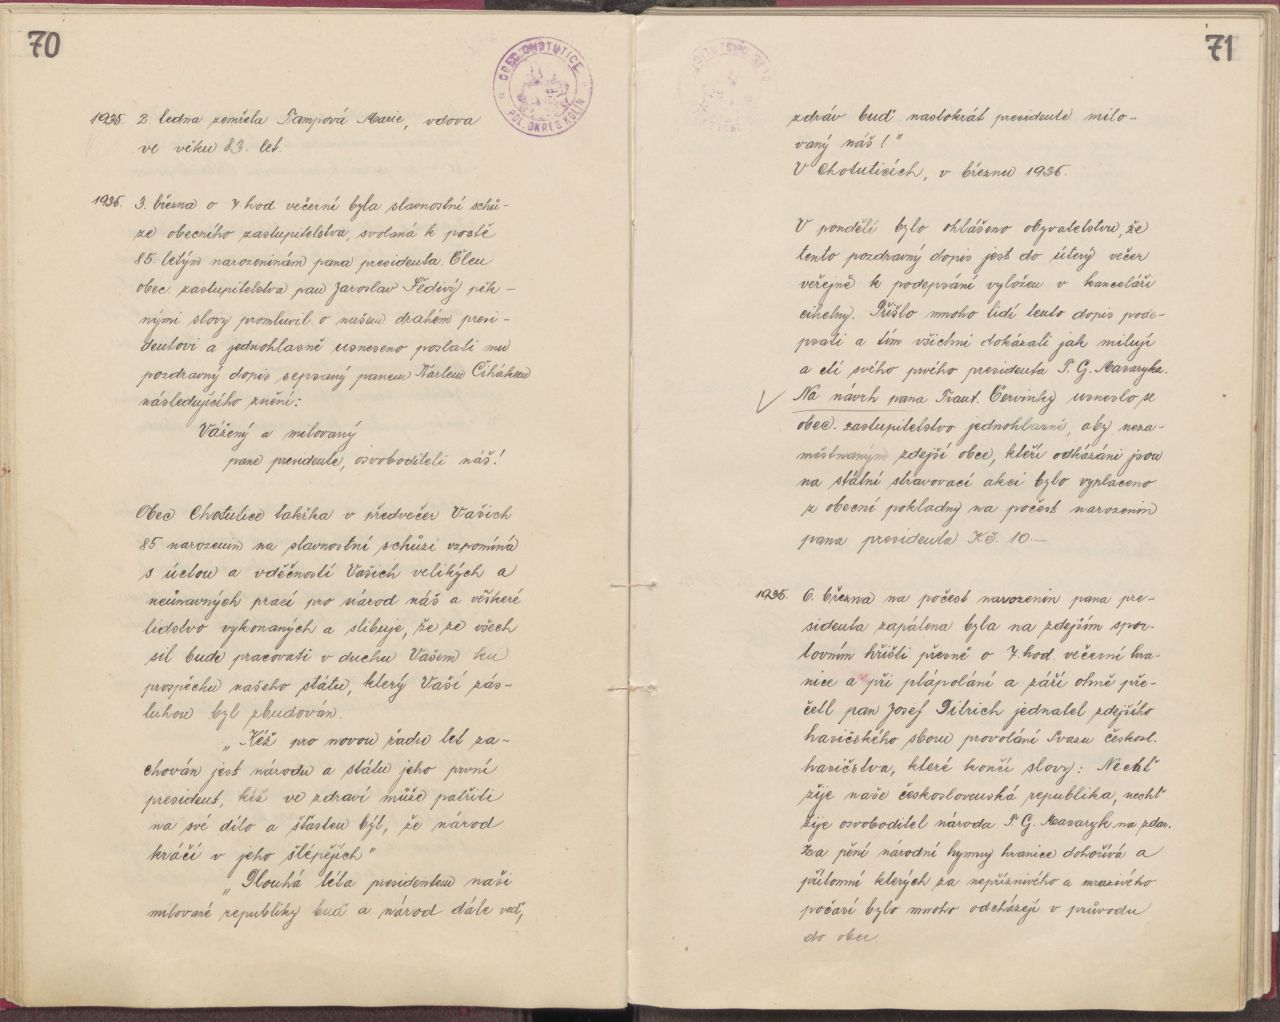 70
OBEC CHOTUTICE
POL. OKRES KOLÍN
1935. 2. ledna zemřela Pampová Marie, vdova
ve věku 83. let.
1935. 3. března o 7 hod večerní byla slavnostní schů-
ze obecního zastupitelstva, svolaná k poctě
85. letým narozeninám pana presidenta. Člen
obec. zastupitelstva pan Jaroslav Šedivý pěk-
nými slovy promluvil o našem drahém presi-
dentovi a jednohlasně usneseno poslati mu
pozdravný dopis sepsaný panem Karlem Čihákem
následujícího znění:
Vážený a milovaný
pane presidente, osvoboditeli náš!
Obec Chotutice takřka v předvečer Vašich
85. narozenin na slavnostní schůzi vzpomíná
s úctou a vděčností Vašich velikých a
neúnavných prací pro národ náš a veškeré
lidstvo vykonaných a slibuje, že ze všech
sil bude pracovati v duchu Vašem ku
prospěchu našeho státu, který Vaší zás-
luhou byl zbudován.
„Kéž pro novou řadu let za-
chován jest národu a státu jeho první
president, kéž ve zdraví může patřiti
na své dílo a šťasten být, že národ
kráčí v jeho šlépějích"
„Dlouhá léta presidentem naší
milované republiky buď a národ dále veď,
71
zdráv buď nastokrát presidente milo-
vaný náš!"
V Chotuticích, v březnu 1935.
V pondělí bylo ohlášeno obyvatelstvu, že
tento pozdravný dopis jest do úterý večer
veřejně k podepsání vyložen v kanceláři
cihelny. Přišlo mnoho lidí tento dopis pode-
psati a tím všichni dokázali jak milují
a ctí svého prvého presidenta T. G. Masaryka.
Na návrh pana Frant. Červinky usneslo se
obec. zastupitelstvo jednohlasně, aby neza-
městnaným zdejší obce, kteří odkázáni jsou
na státní stravovací akci bylo vyplaceno
z obecní pokladny na počest narozenin
pana presidenta Kč. 10.—
1935. 6. března na počest narozenin pana pre-
sidenta zapálena byla na zdejším spor-
tovním hřišti přesně o 7. hod. večerní hra-
nice a při plápolání a záři ohně pře-
četl pan Josef Ditrich jednatel zdejšího
hasičského sboru provolání Svazu českosl.
hasičstva, které končí slovy: Nechť
žije naše československá republika, nechť
žije osvoboditel národa T. G. Masaryk na zdar.
Za pění národní hymny hranice dohořívá a
přítomní kterých za nepříznivého a mrazivého
počasí bylo mnoho odcházejí v průvodu
do obce.